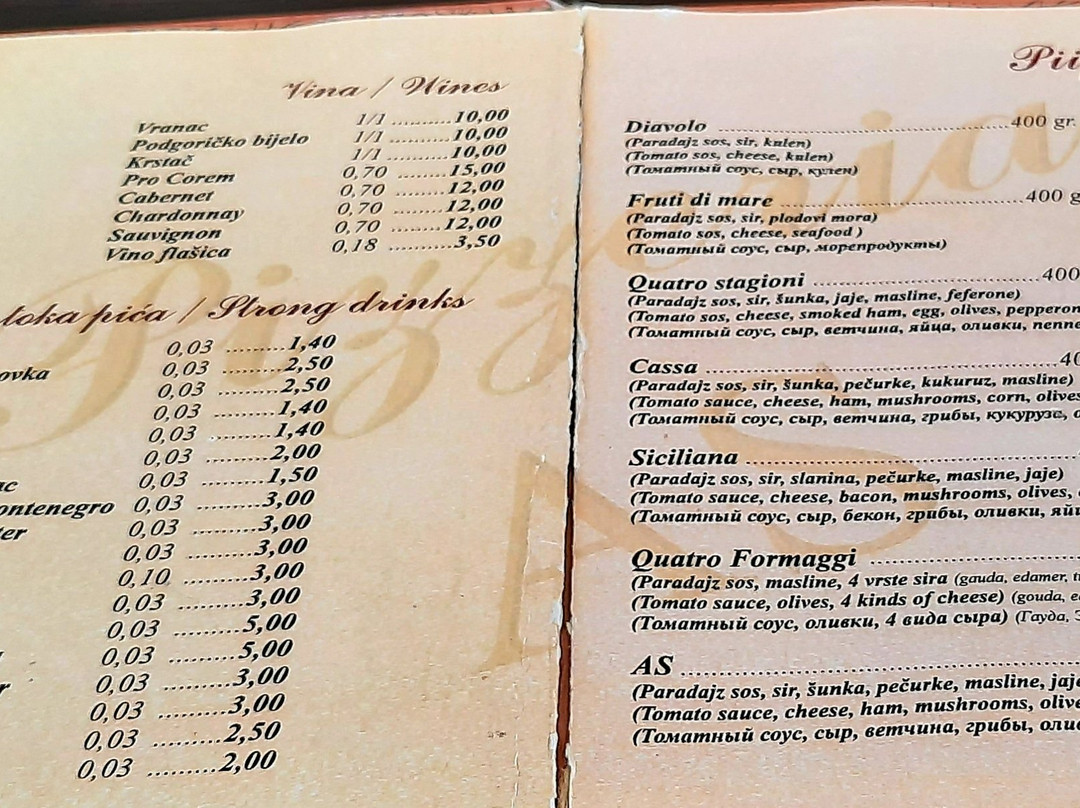 Vina / Wines
Vranac 1/1 ..........10,00
Podgoričko bijelo 1/1 ..........10,00
Krstač 1/1 ..........10,00
Pro Corem 0,70 ..........15,00
Cabernet 0,70 ..........12,00
Chardonnay 0,70 ..........12,00
Sauvignon 0,70 ..........12,00
Vino flašica 0,18 ..........3,50
toka pića / Strong drinks
0,03 .........1,40
ovka 0,03 .........2,50
0,03 .........2,50
0,03 .........1,40
0,03 .........1,40
0,03 .........2,00
ac 0,03 .........1,50
ontenegro 0,03 .........3,00
ter 0,03 .........3,00
0,03 .........3,00
0,10 .........3,00
0,03 .........3,00
0,03 .........5,00
0,03 .........5,00
r 0,03 .........3,00
0,03 .........3,00
0,03 .........2,50
0,03 .........2,00
Pizzeria
AS
Pi
Diavolo ..........400 gr.
(Paradajz sos, sir, kulen)
(Tomato sos, cheese, kulen)
(Томатный соус, сыр, кулен)
Fruti di mare ..........400 g
(Paradajz sos, sir, plodovi mora)
(Tomato sos, cheese, seafood )
(Томатный соус, сыр, морепродукты)
Quatro stagioni ..........400
(Paradajz sos, sir, šunka, jaje, masline, feferone)
(Tomato sos, cheese, smoked ham, egg, olives, pepperon
(Томатный соус, сыр, ветчина, яйца, оливки, пепе
Cassa ..........40
(Paradajz sos, sir, šunka, pečurke, kukuruz, masline)
(Tomato sauce, cheese, ham, mushrooms, corn, olives
(Томатный соус, сыр, ветчина, грибы, кукурузе, о
Siciliana ..........
(Paradajz sos, sir, slanina, pečurke, masline, jaje)
(Tomato sauce, cheese, bacon, mushrooms, olives,
(Томатный соус, сыр, бекон, грибы, оливки, яй
Quatro Formaggi ..........
(Paradajz sos, masline, 4 vrste sira (gauda, edamer, t
(Tomato sauce, olives, 4 kinds of cheese) (gouda, e
(Томатный соус, оливки, 4 вида сыра) (Гауда, Э
AS ..........
(Paradajz sos, sir, šunka, pečurke, masline, jaje
(Tomato sauce, cheese, ham, mushrooms, olive
(Томатный соус, сыр, ветчина, грибы, олив